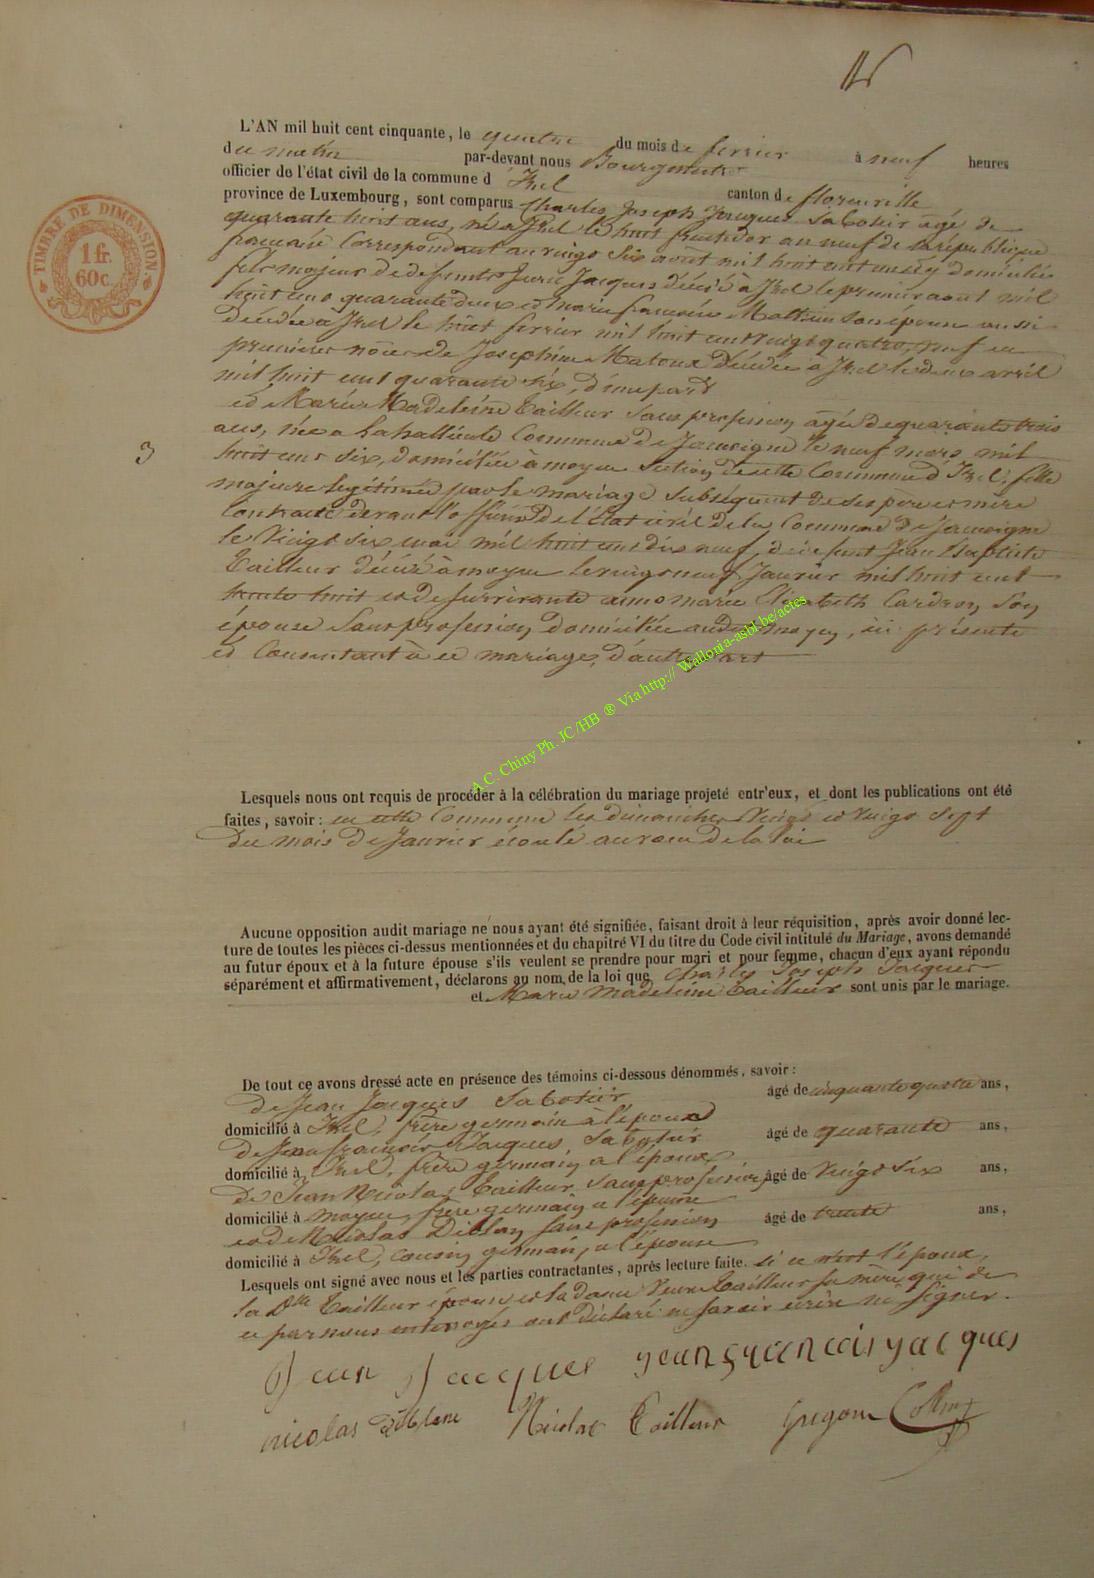 L'AN mil huit cent cinquante, le quatre du mois de février à neuf heures
du matin par-devant nous Bourgmestre
officier de l'état civil de la commune d'Izel canton de florenville
province de Luxembourg, sont comparus Charles Joseph Jacques Sabotier agé de
quarante huit ans, né a Izel le huit fructidor an neuf de la république
française Correspondant au vingt six aout mil huit cent un et y domicilié
fils majeur de defunts Jacques décédé à Izel le premier aout mil
huit cent quarante deux et Marie françoise son épouse aussi
décédée à Izel le huit fevrier mil huit cent vingt quatre, veuf en
premières nôces de Josephine Matoux décédée à Izel le deux avril
mil huit cent quarante six, d'une part
et Marie Madeleine Tailleur sans profession agée de quarante trois
ans, née a Lahailleule Commune de Jamoigne le neuf mars mil
huit cent six, domiciliée à moyen section de cette Commune d'Izel, fille
3
majeure legitimée par le mariage subséquent de ses père et mère
Contracté devant l'officier de l'Etat civil de la Commune de Jamoigne
le Vingt six mai mil huit cent dix neuf, de defunt Jean Baptiste
Tailleur décédé à moyen le vingt neuf Janvier mil huit cent
trente huit et de survivante anne marie Elisabeth Cardron son
épouse sans profession domiciliée audit moyen, ici présente
et Consentant à ce mariage, d'autre part
Lesquels nous ont requis de procéder à la célébration du mariage projeté entr'eux, et dont les publications ont été
faites, savoir : en cette Commune les dimanches Vingt et Vingt Sept
du mois de Janvier écoulé au vœu de la loi
Aucune opposition audit mariage ne nous ayant été signifiée, faisant droit à leur réquisition, après avoir donné lec-
ture de toutes les pièces ci-dessus mentionnées et du chapitre VI du titre du Code civil intitulé du Mariage, avons demandé
au futur époux et à la future épouse s'ils veulent se prendre pour mari et pour femme, chacun d'eux ayant répondu
séparément et affirmativement, déclarons au nom de la loi que Charles Joseph Jacques
et Marie Madeleine Tailleur sont unis par le mariage.
De tout ce avons dressé acte en présence des témoins ci-dessous dénommés, savoir :
de Jean Jacques Sabotier âgé de cinquante quatre ans,
domicilié à Izel, frère germain à l'époux
de Jean françois Jacques Sabotier âgé de quarante ans,
domicilié à Izel, frère germain a l'époux
de Jean Nicolas Tailleur sans profession âgé de Vingt six ans,
domicilié à moyen, frère germain a l'épouse
et de Nicolas Diblan sans profession âgé de trente ans,
domicilié à Izel, cousin germain, a l'épouse
Lesquels ont signé avec nous et les parties contractantes, après lecture faite. si ce n'est l'époux,
la Dlle Tailleur épouse et la dame Veuve Tailleur sa mère qui de
ce par nous ont déclaré ne savoir écrire ni signer.
Jean Jacques jean francois jacques
nicolas Nicolas Tailleur Gregoire
TIMBRE DE DIMENSION
1 fr.
60 c.
A.C. Chiny Ph. JC/HB ® Via http:// Wallonia-asbl.be/actes